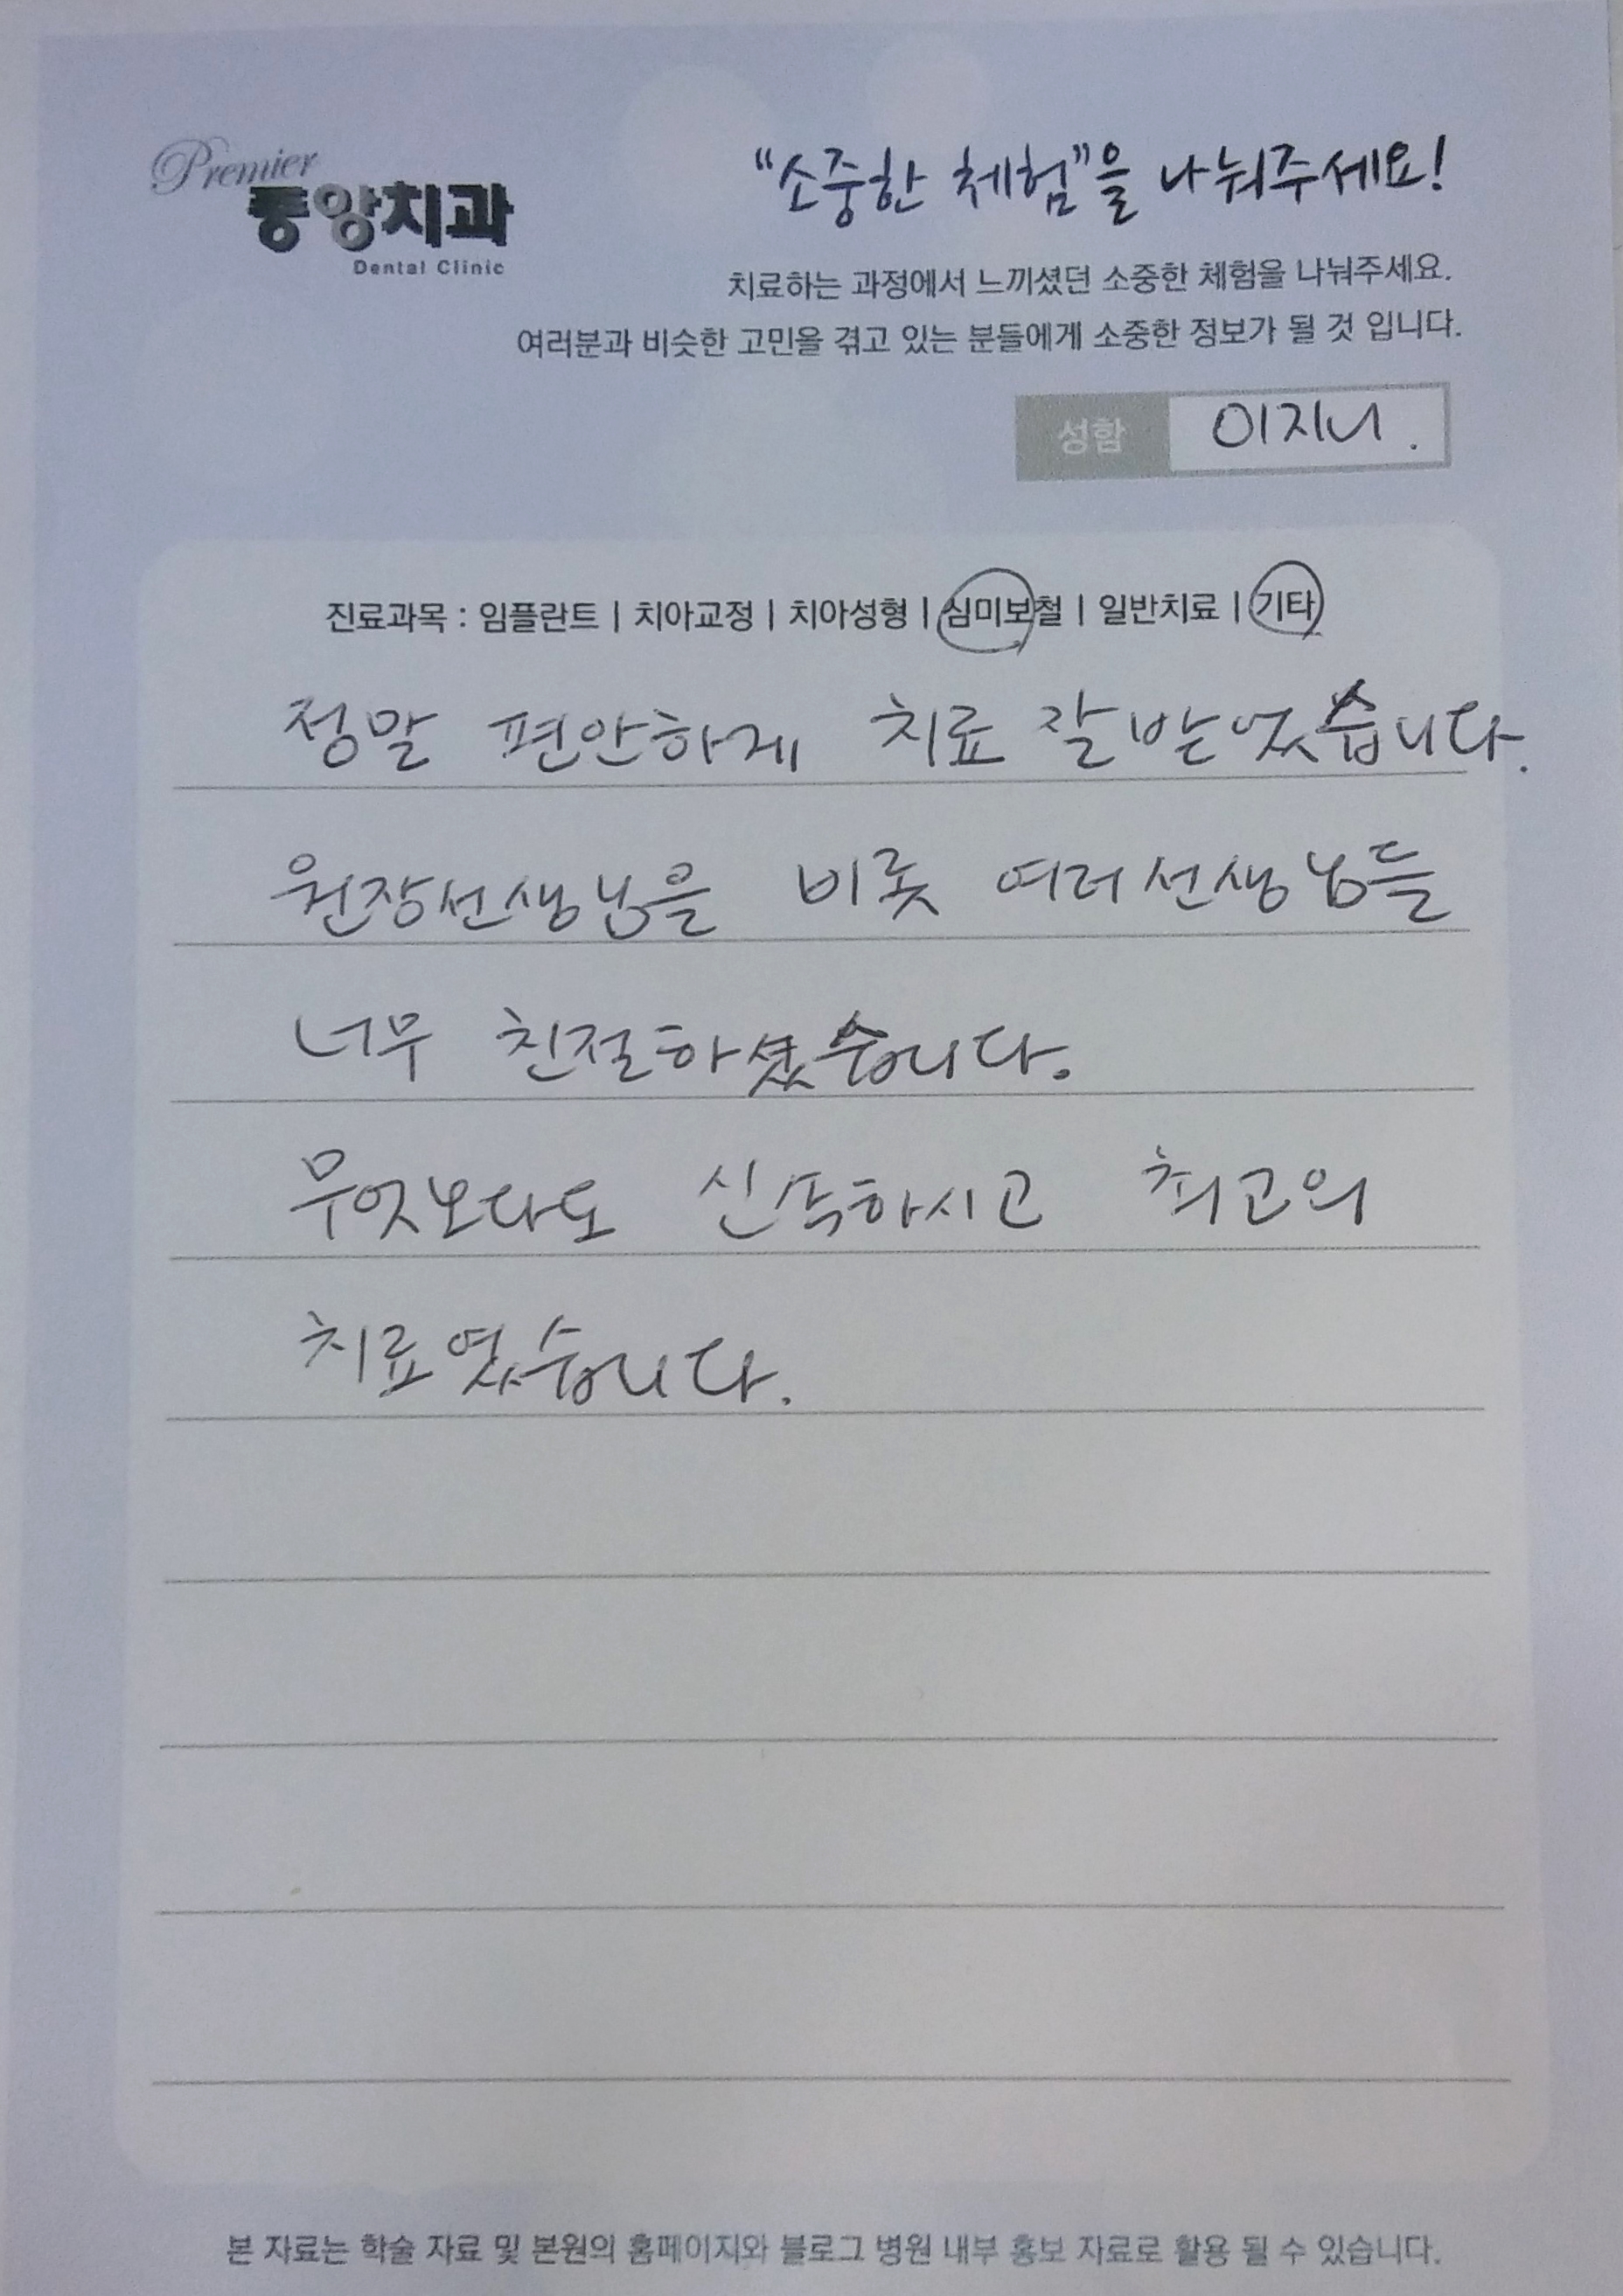 Premier
중앙치과
Dental Clinic
"소중한 체험"을 나눠주세요!
치료하는 과정에서 느끼셨던 소중한 체험을 나눠주세요.
여러분과 비슷한 고민을 겪고 있는 분들에게 소중한 정보가 될 것 입니다.
성함 이지니.
진료과목 : 임플란트 | 치아교정 | 치아성형 | 심미보철 | 일반치료 | 기타
정말 편안하게 치료 잘 받았습니다.
원장선생님을 비롯 여러선생님들
너무 친절하셨습니다.
무엇보다도 신속하시고 최고의
치료였습니다.
본 자료는 학술 자료 및 본원의 홈페이지와 블로그 병원 내부 홍보 자료로 활용 될 수 있습니다.